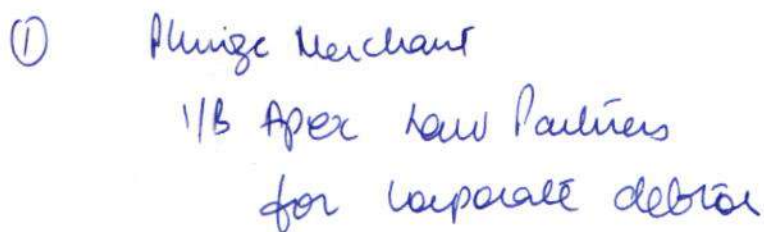 ① Phiroze Merchant
i/B Apex Law Partners
for corporate debtor